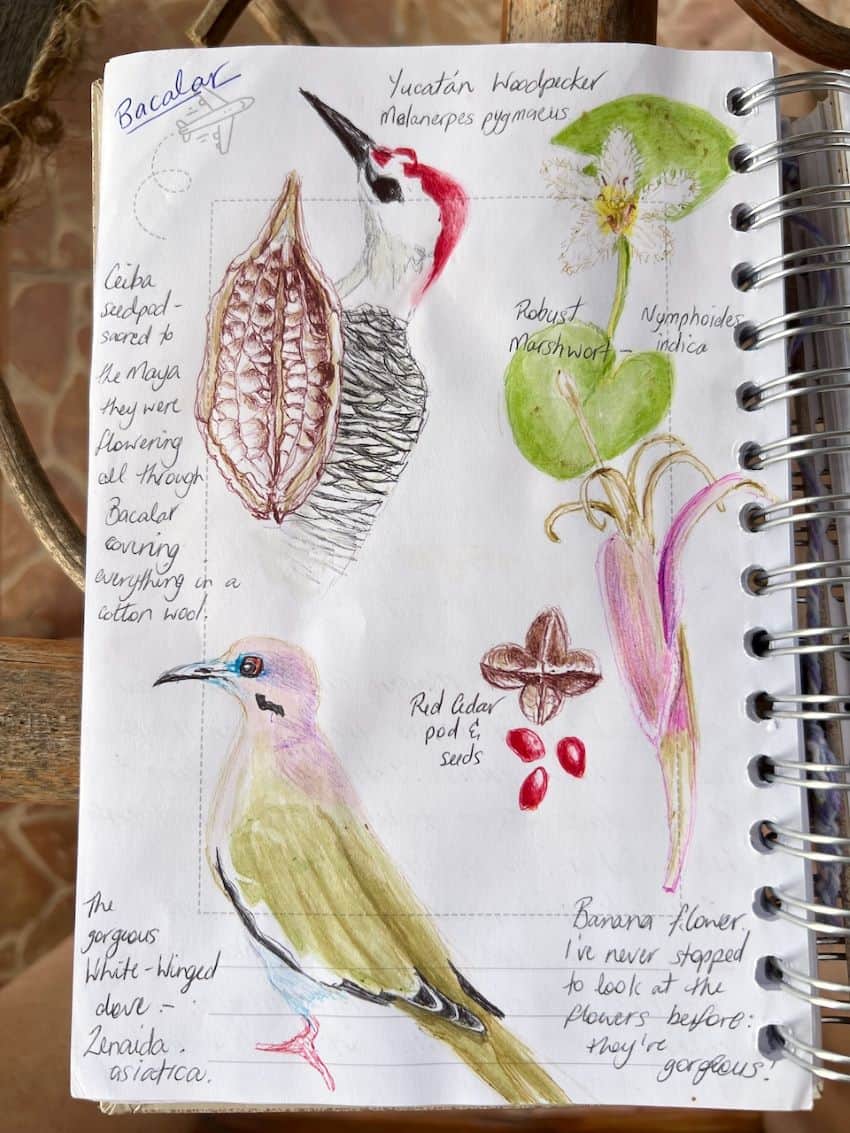 Bacalar
Yucatán Woodpecker
Melanerpes pygmaeus
Ceiba
seedpod -
sacred to
the Maya
they were
flowering
all through
Bacalar
covering
everything in a
cotton wool.
Robust
Marshwort -
Nymphoides
indica
Red Cedar
pod &
seeds
The
gorgeous
White-Winged
dove -
Zenaida
asiatica.
Banana flower.
I've never stopped
to look at the
flowers before:
they're
gorgeous!